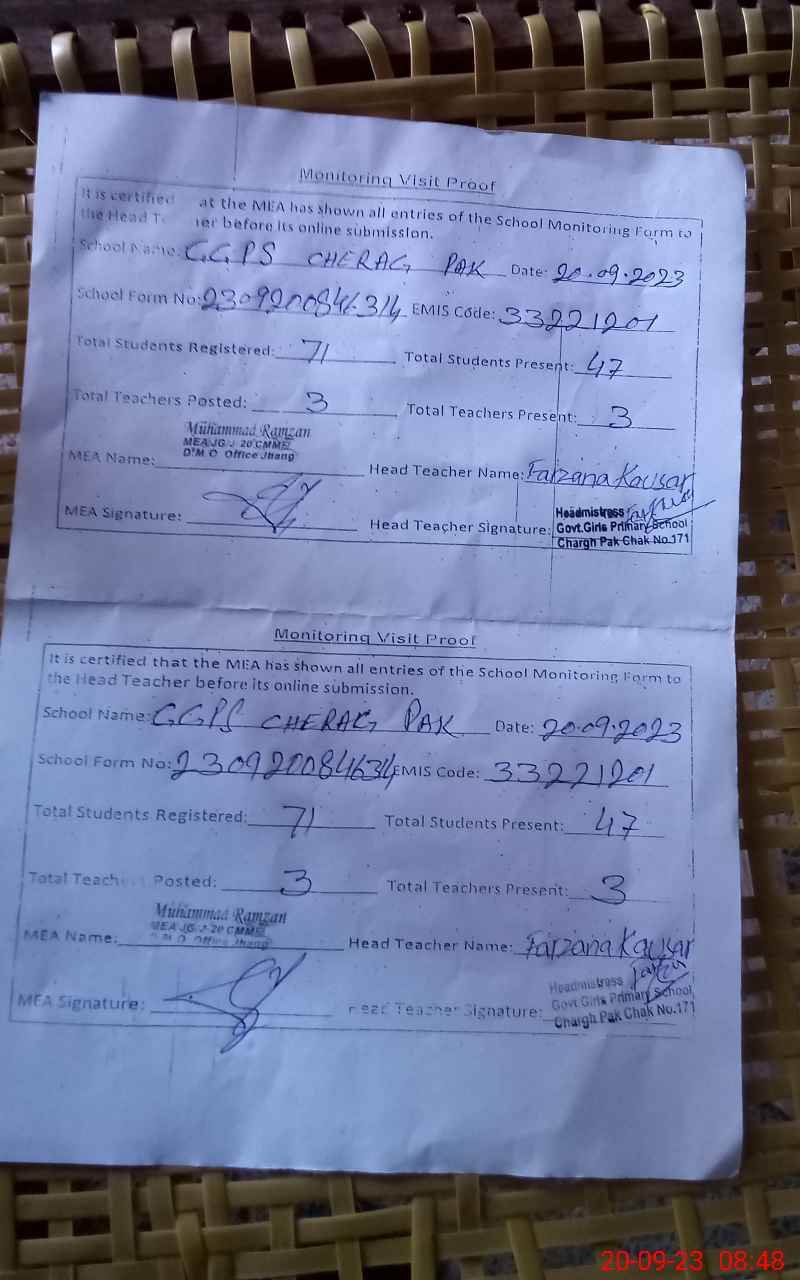 Monitoring Visit Proof
It is certified at the MEA has shown all entries of the School Monitoring Form to
the Head Te her before its online submission.
School Name: GGPS CHERAG PAK Date: 20.09.2023
School Form No: 230920084634 EMIS Code: 33221201
Total Students Registered: 71 Total Students Present: 47
Total Teachers Posted: 3 Total Teachers Present: 3
Muhammad Ramzan
MEA/JG/J-20 CMMF
D.M.O Office Jhang
MEA Name: Head Teacher Name: Farzana Kausar
MEA Signature: Head Teacher Signature:
Headmistress
Govt.Girls Primary School
Chargh Pak Chak No.171
Monitoring Visit Proof
It is certified that the MEA has shown all entries of the School Monitoring Form to
the Head Teacher before its online submission.
School Name: GGPS CHERAG PAK Date: 20.09.2023
School Form No: 230920084634 EMIS Code: 33221201
Total Students Registered: 71 Total Students Present: 47
Total Teach Posted: 3 Total Teachers Present: 3
Muhammad Ramzan
MEA JG/J-20 CMMF
D.M.O. Office Jhang
MEA Name: Head Teacher Name: Farzana Kausar
MEA Signature: Head Teacher Signature:
Headmistress
Govt Girls Primary School
Chargh Pak Chak No.171
20-09-23 08:48